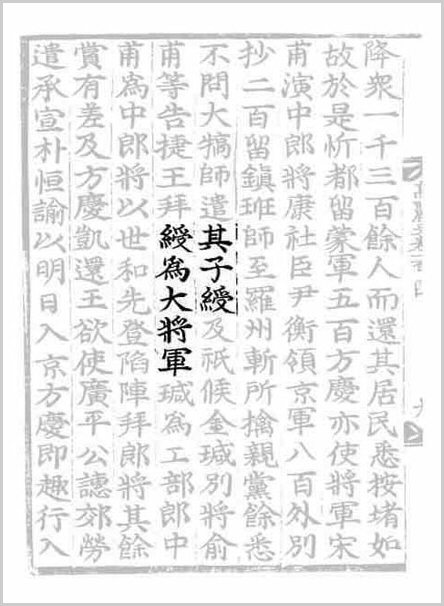 降衆一千三百餘人而還其居民悉按堵如
故於是忻都留蒙軍五百方慶亦使將軍宋
甫演中郎將康社臣尹衡領京軍八百外別
抄二百留鎭班師至羅州斬所擒親黨餘悉
不問大犒師遣其子綬及祇候金瑊別將兪
甫等告捷王拜綬爲大將軍瑊爲工部郎中
甫爲中郎將以世和先登陷陣拜郎將其餘
賞有差及方慶凱還王欲使廣平公譓郊勞
遣承宣朴恒諭以明日入京方慶即趣行入